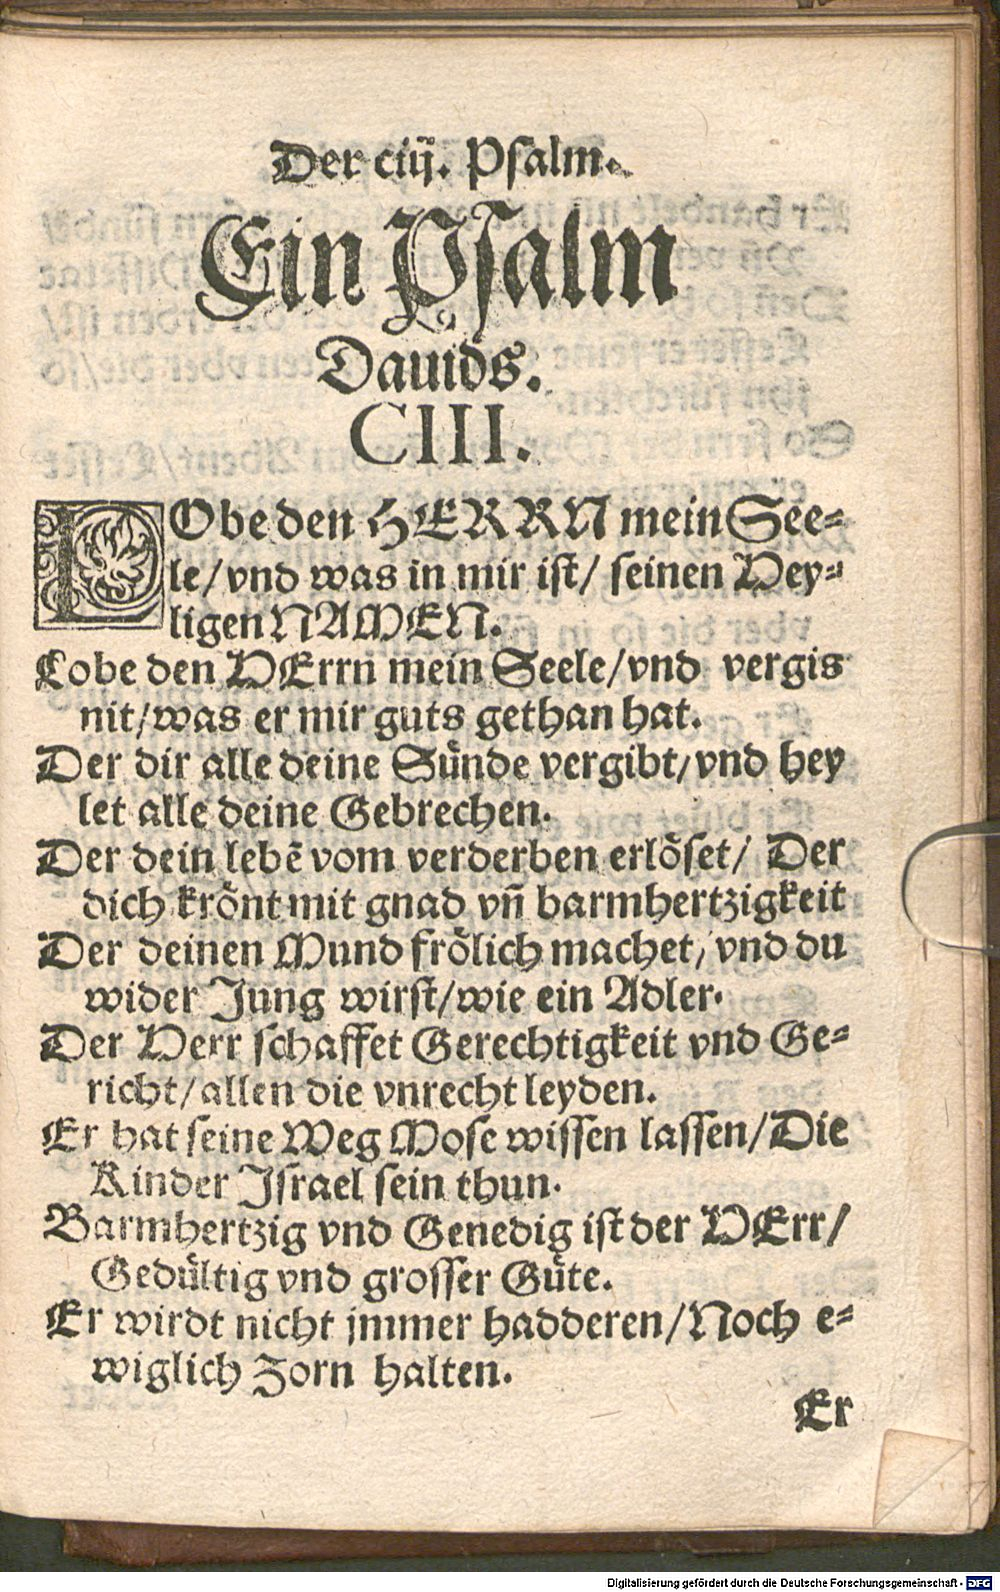 Der ciij. Psalm.
Ein Psalm
Dauids.
CIII.
LObe den HERRN mein See-
le/ vnd was in mir ist/ seinen Hey-
ligen NAMEN.
Lobe den HErrn mein Seele/ vnd vergis
nit/ was er mir guts gethan hat.
Der dir alle deine Sünde vergibt/ vnd hey
let alle deine Gebrechen.
Der dein lebē vom verderben erlöset/ Der
dich krönt mit gnad vn̄ barmhertzigkeit
Der deinen Mund frölich machet/ vnd du
wider Jung wirst/ wie ein Adler.
Der Herr schaffet Gerechtigkeit vnd Ge-
richt/ allen die vnrecht leyden.
Er hat seine Weg Mose wissen lassen/ Die
Kinder Israel sein thun.
Barmhertzig vnd Genedig ist der HErr/
Gedültig vnd grosser Güte.
Er wirdt nicht jmmer hadderen/ Noch e-
wiglich Zorn halten.
Er
Digitalisierung gefördert durch die Deutsche Forschungsgemeinschaft - DFG